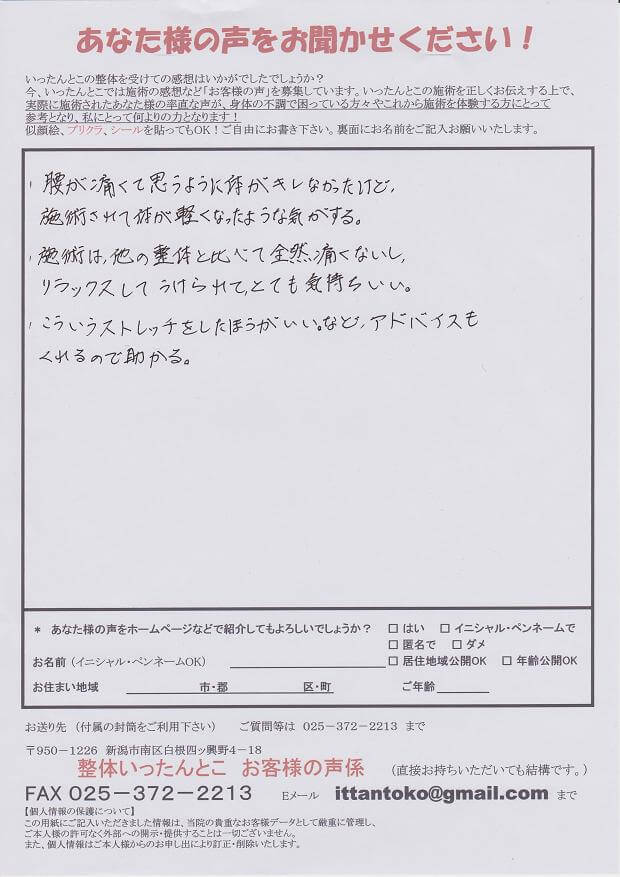 あなた様の声をお聞かせください！
いったんとこの整体を受けての感想はいかがでしたでしょうか？
今、いったんとこでは施術の感想など「お客様の声」を募集しています。いったんとこの施術を正しくお伝えする上で、
実際に施術されたあなた様の率直な声が、身体の不調で困っている方々やこれから施術を体験する方にとって
参考となり、私にとって何よりの力となります！
似顔絵、プリクラ、シールを貼ってもOK！ご自由にお書き下さい。裏面にお名前をご記入お願いいたします。
腰が痛くて思うように体がキレなかったけど、
施術されて体が軽くなったような気がする。
施術は、他の整体と比べて全然痛くないし、
リラックスしてうけられて、とても気持ちいい。
こういうストレッチをしたほうがいい。など、アドバイスも
くれるので助かる。
* あなた様の声をホームページなどで紹介してもよろしいでしょうか？ □ はい □ イニシャル・ペンネームで
□ 匿名で □ ダメ
お名前（イニシャル・ペンネームOK） □ 居住地域公開OK □ 年齢公開OK
お住まい地域 市・郡 区・町 ご年齢
お送り先 （付属の封筒をご利用下さい） ご質問等は 025－372－2213 まで
〒950－1226 新潟市南区白根四ッ興野4－18
整体いったんとこ お客様の声係 （直接お持ちいただいても結構です。）
FAX 025－372－2213 Eメール ittantoko@gmail.com まで
【個人情報の保護について】
この用紙にご記入いただきました情報は、当院の貴重なお客様データとして厳重に管理し、
ご本人様の許可なく外部への開示・提供することは一切ございません。
また、個人情報はご本人様からのお申し出により訂正・削除いたします。